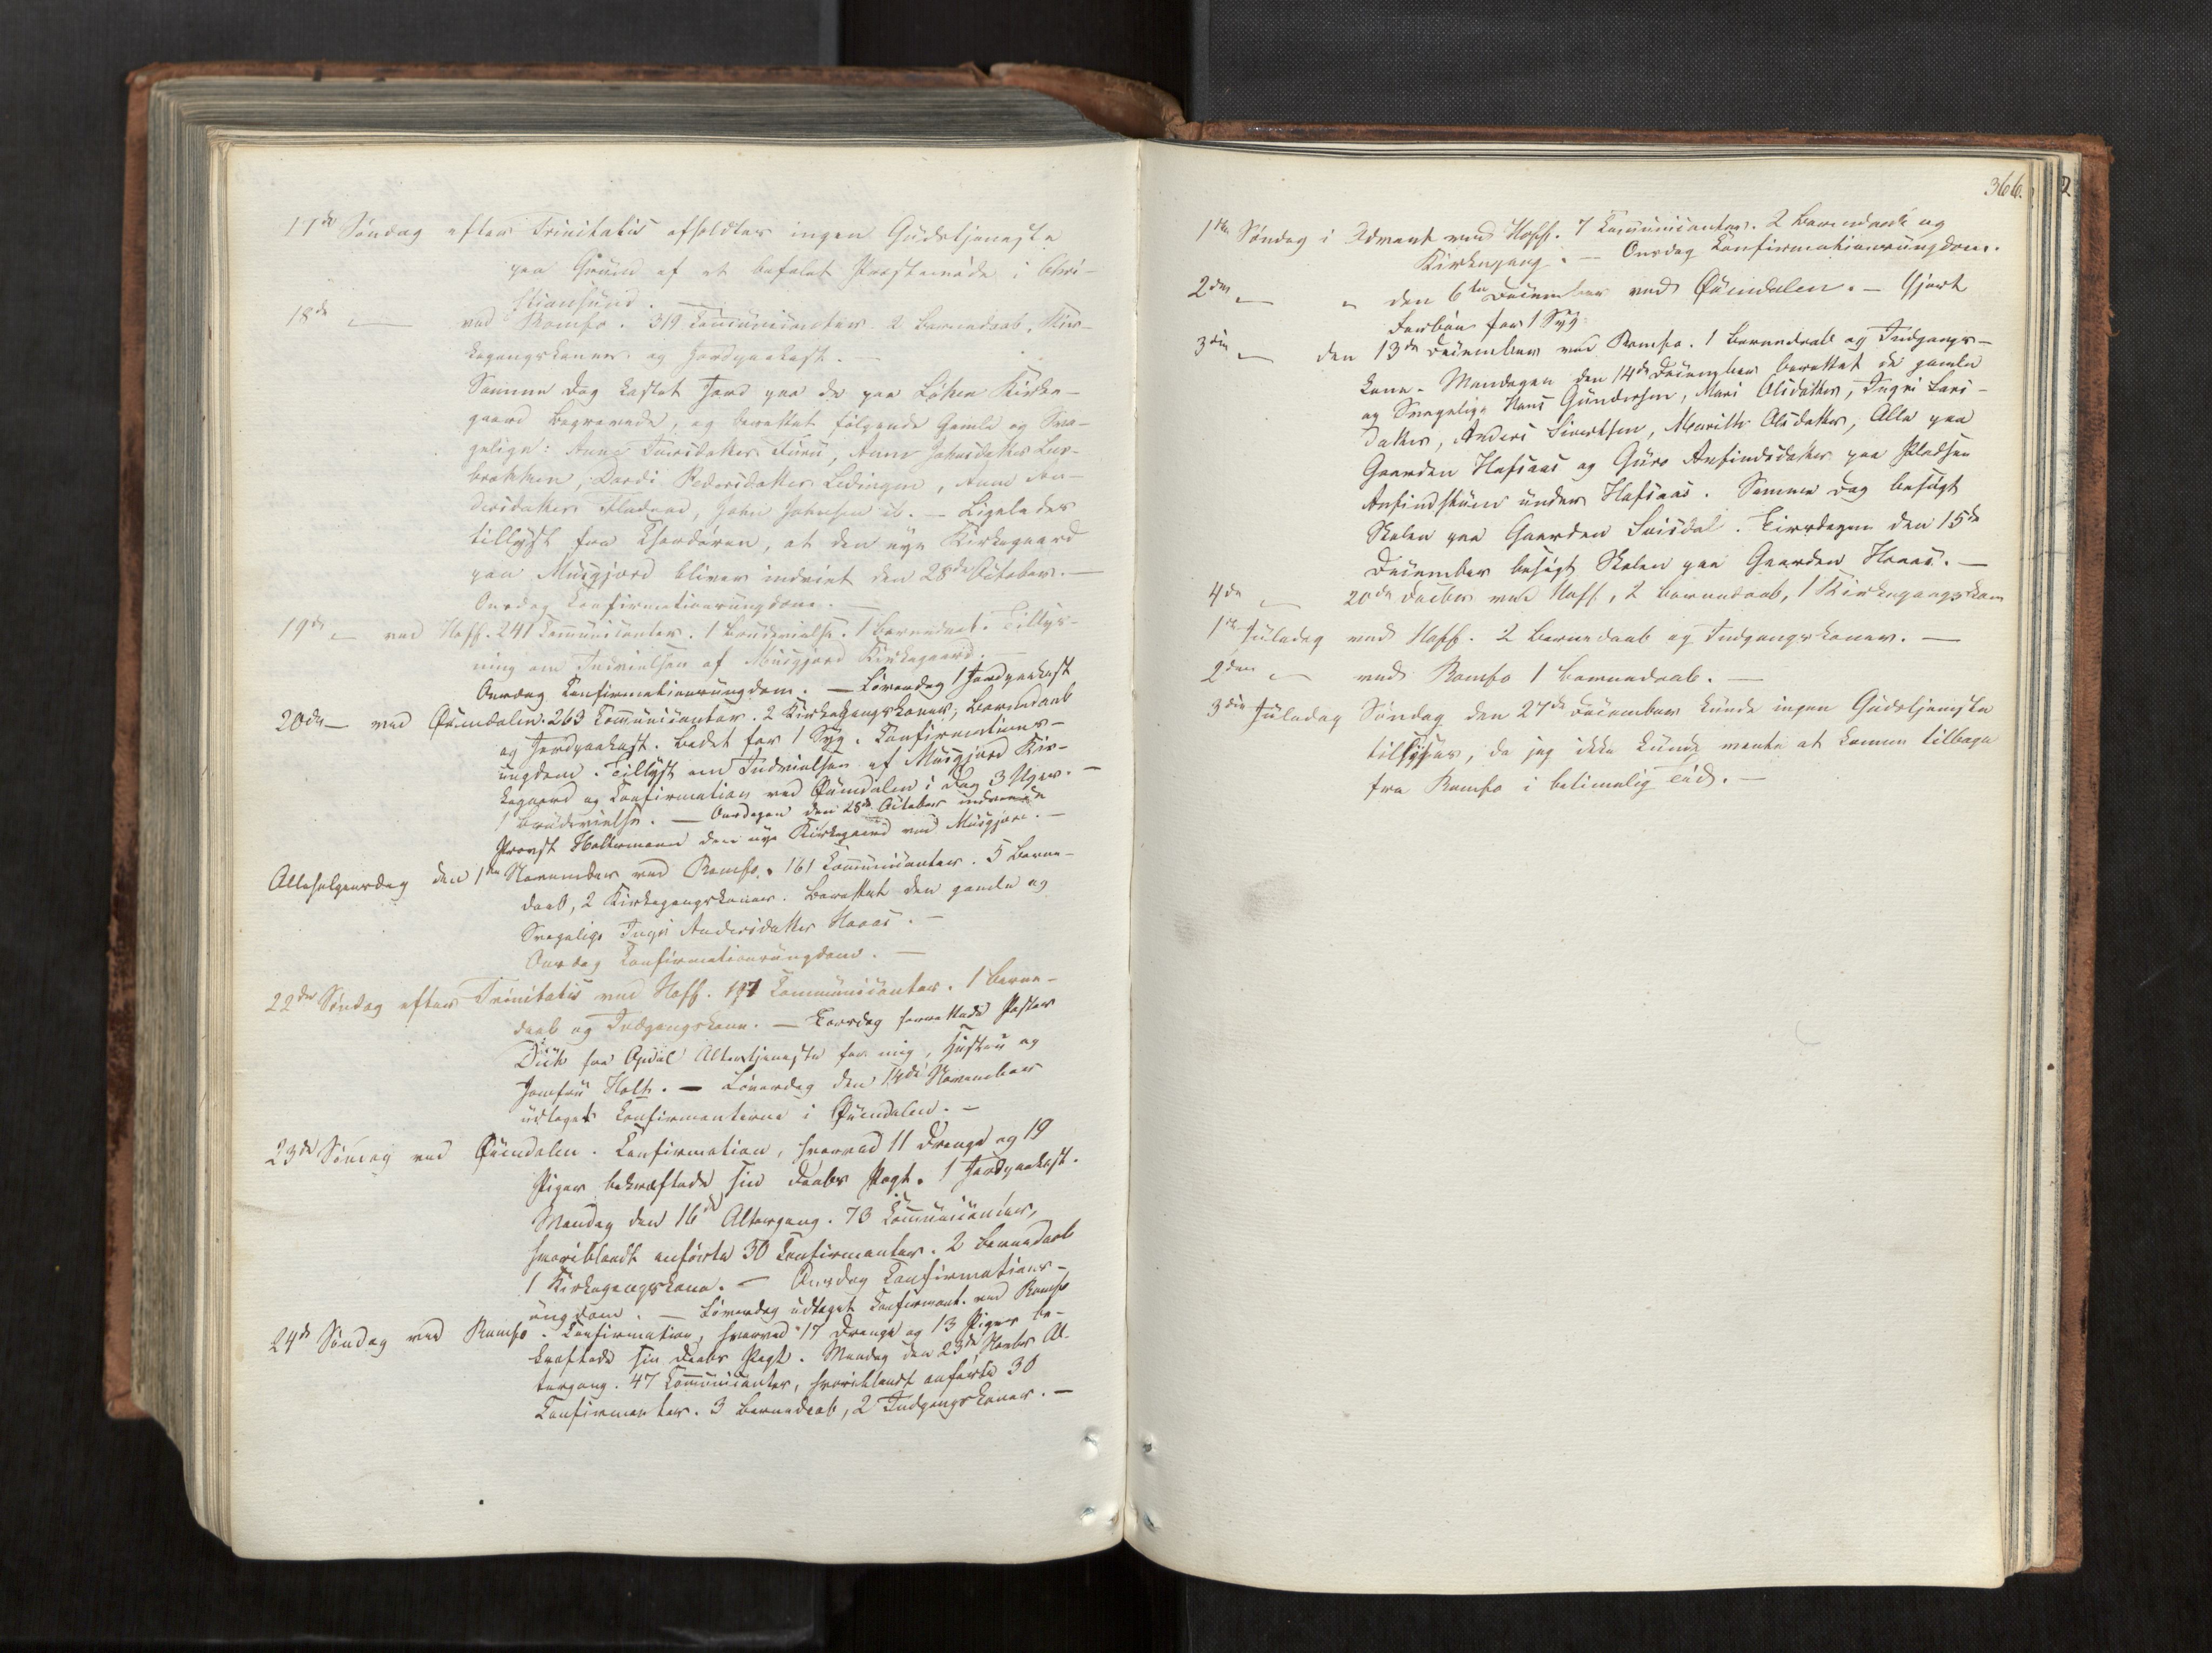 17de Søndag efter Trinitatis afholdtes ingen Gudstjeneste
paa Grund af et befalet Præstemøde i Chri-
stiansund. —
18de — ved Romfo. 319 Communicanter. 2 Barnedaab, Kir-
kegangskoner og Jordpaakast. —
Samme Dag kastet Jord paa de paa Løken Kirke-
gaard begravede, og berettet følgende Gamle og Sva-
gelige: Anne Furu, Anne Johnsdatter
Dordi Pedersdatter Ledingen, Anne An-
dersdatter John Johnsen ib. — Ligeledes
tillyst fra Chordøren, at den nye Kirkegaard
paa Musgjerd bliver indviet den 28de October. —
Onsdag Confirmationsungdom. —
19de — ved Hoff. 241 Communicanter. 1 Brudevielse. 1 Barnedaab. Tillys-
ning om Indvielsen af Musgjerd Kirkegaard. —
Onsdag Confirmationsungdom. — Løverdag 1 Jordpaakast
20de — ved Øxendalen. 263 Communicanter. 2 Kirkegangskoner, Barnedaab
og Jordpaakast. Bedet for 1 Syg. Confirmations-
ungdom. Tillyst om Indvielsen af Musgjerd Kir-
kegaard og Confirmation ved Øxendalen i Dag 3 Uger. —
1 Brudevielse. — Onsdagen den 28de October indviede
Provst Holtermann den nye Kirkegaard ved Musgjerd. —
Allehelgensdag den 1ste November ved Romfo. 161 Communicanter. 5 Barne-
daab, 2 Kirkegangskoner. Berettet den gamle og
Svagelige Ingri Andersdatter Haaas. —
Onsdag Confirmationsungdom. —
22de Søndag efter Trinitatis ved Hoff. 197 Communicanter. 1 Barne-
daab og Indgangskone. — Torsdag forrettede Pastor
fra Opdal Altertjeneste for mig, Hustru og
Jomfru Holth. — Løverdag den 14de November
udtaget Confirmanterne i Øxendalen. —
23de Søndag ved Øxendalen. Confirmation, hvorved 11 Drenge og 19
Piger bekræftede sin Daabs Pagt. 1 Jordpaakast.
Mandag den 16de Altergang. 73 Communicanter,
hvoriblandt anførte 30 Confirmanter. 2 Barnedaab
1 Kirkegangskone. — Onsdag Confirmations-
ungdom. — Løverdag udtaget Confirmant. ved Romfo
24de Søndag ved Romfo. Confirmation, hvorved 17 Drenge og 13 Piger be-
kræftede sin Daabs Pagt. Mandag den 23de Novbr Al-
tergang. 47 Communicanter, hvoriblandt anførte 30
Confirmanter. 3 Barnedaab, 2 Indgangskoner. —
366.
1ste Søndag i Advent ved Hoff. 7 Communicanter. 2 Barnedaab og
Kirkegang. — Onsdag Confirmationsungdom.
2den — " den 6te December ved Øxendalen. — Gjort
Forbøn for 1 Syg.
3die — den 13de December ved Romfo. 1 Barnedaab og Indgangs-
kone. Mandagen den 14de December berettet de gamle
og Svagelige Hans Gundersen, Mari Olsdatter, Ingri Lars-
datter, Anders Sivertsen, Marith Olsdatter, Alle paa
Gaarden Hafsaas og Guro Arfindsdatter paa Pladsen
Arfindstuen under Hafsaas. Samme Dag besøgt
Skolen paa Gaarden Snisdal. Tirsdagen den 15de
December besøgt Skolen paa Gaarden Haaas. —
4de — 20de Decbr ved Hoff, 2 Barnedaab, 1 Kirkegangskone
1ste Juledag ved Hoff. 2 Barnedaab og Indgangskoner. —
2den — ved Romfo 1 Barnedaab. —
3die Juledag Søndag den 27de December kunde ingen Gudstjeneste
tillyses, da jeg ikke kunde vente at komme tilbage
fra Romfo i betimelig Tid. —